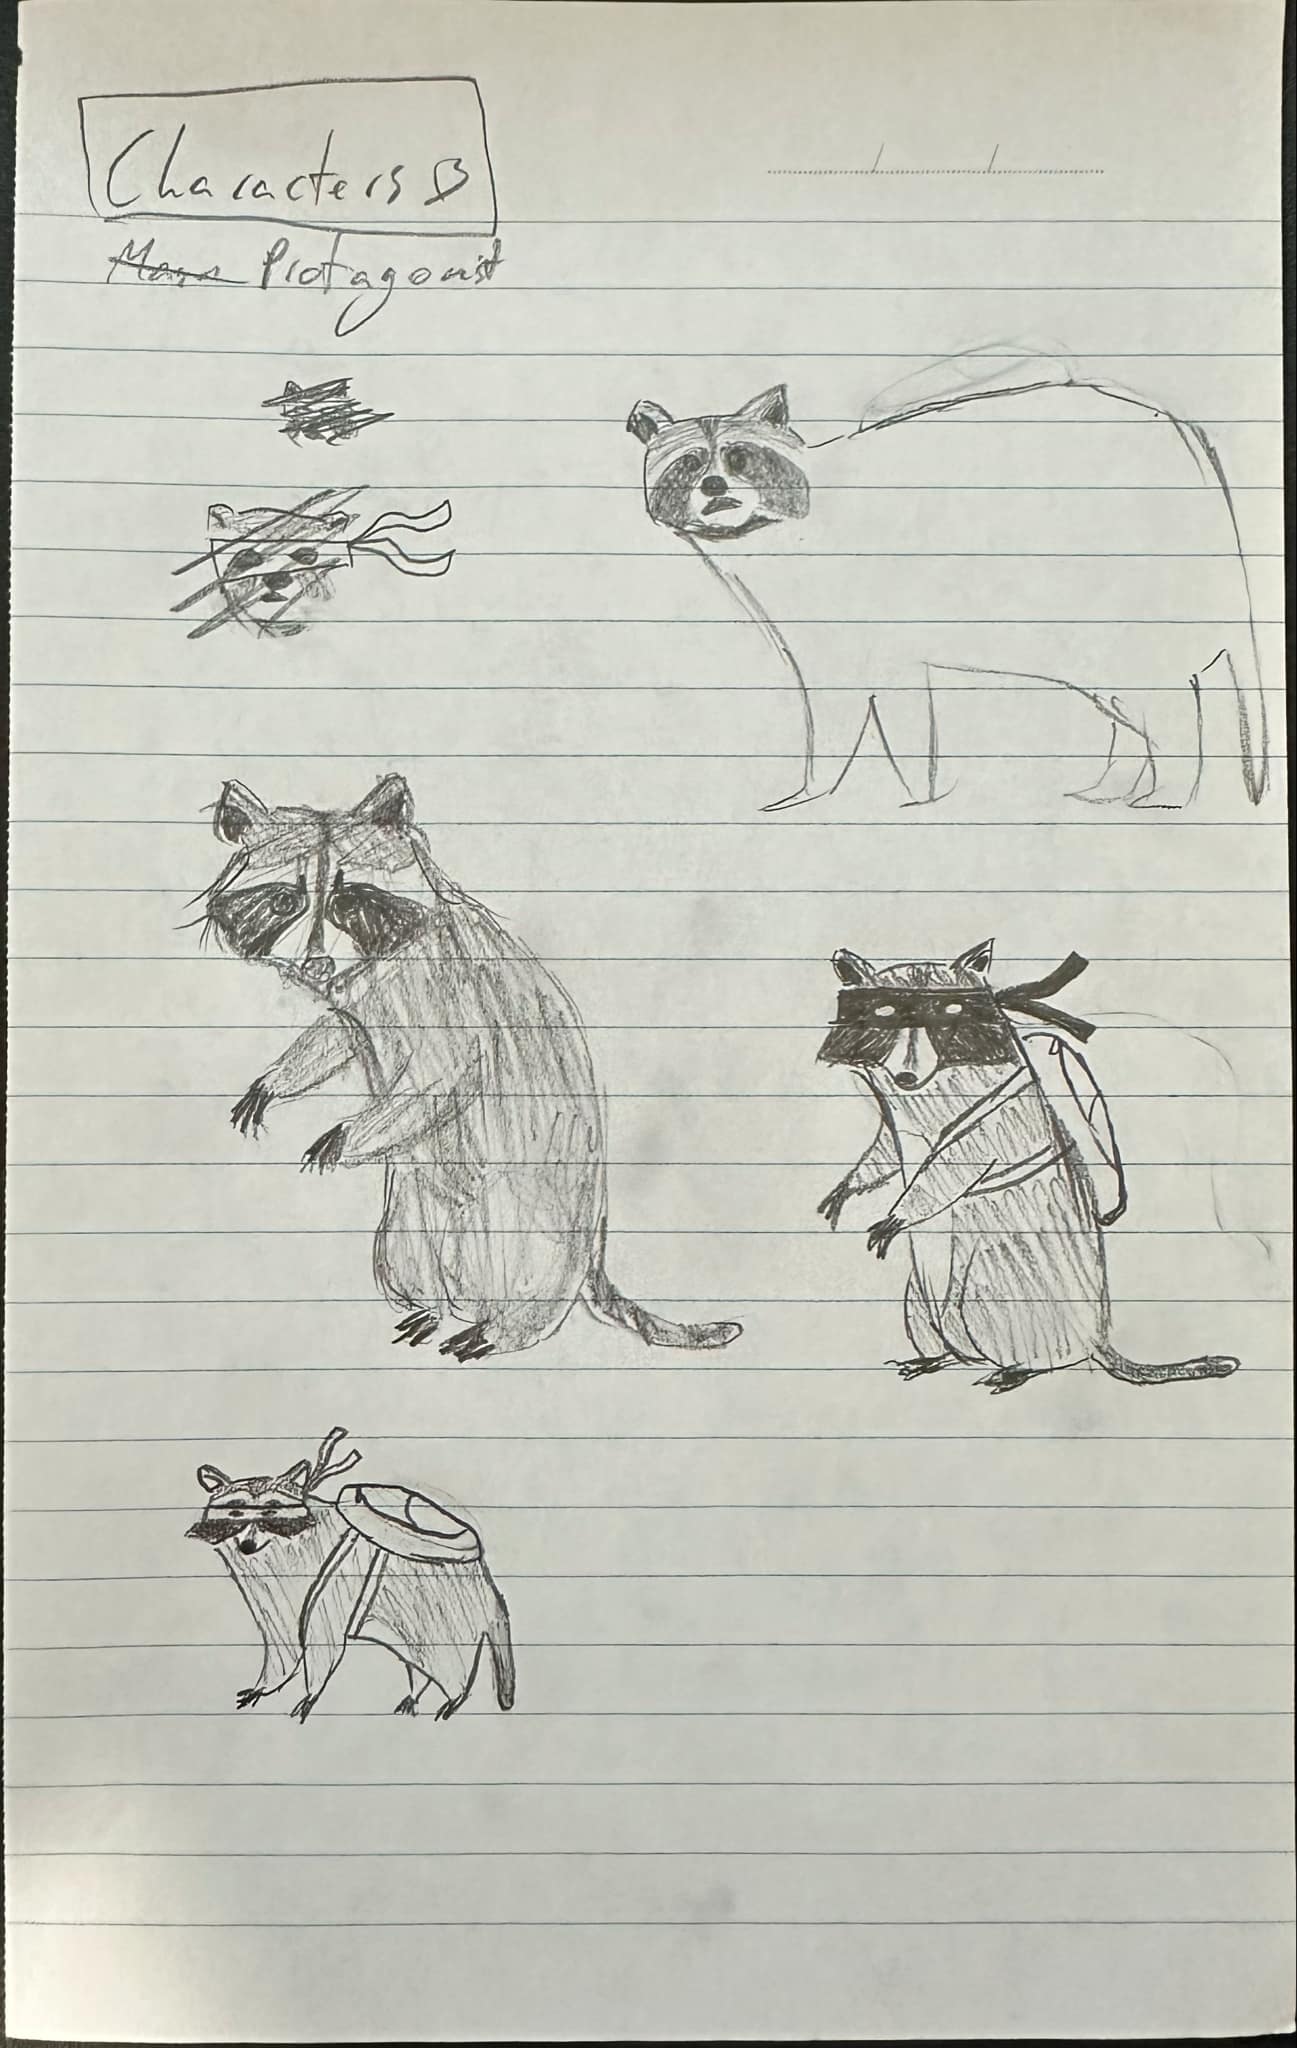 Characters
Protagonist